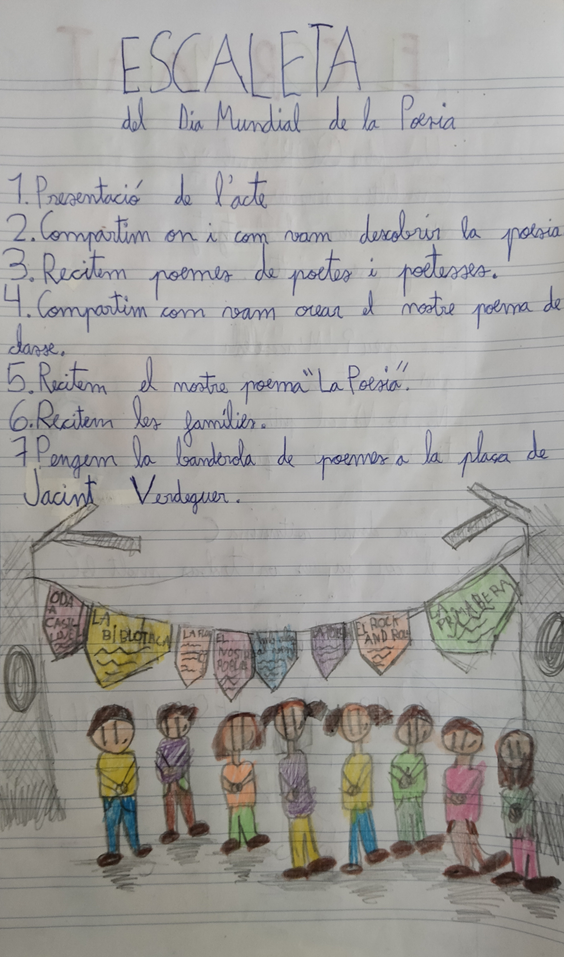 ESCALETA
del Dia Mundial de la Poesia
1. Presentació de l'acte
2. Compartim on i com vam descobrir la poesia
3. Recitem poemes de poetes i poetesses.
4. Compartim com vam crear el nostre poema de
classe.
5. Recitem el nostre poema "La Poesia".
6. Recitem les famílies.
7 Pengem la banderola de poemes a la plaça de
Jacint Verdeguer.
ODA
A
LA
BIBLOTECA
LA
EL
NOSTRE
POBLE
LA POESIA
EL ROCK
AND ROLL
LA
PRIMABERA